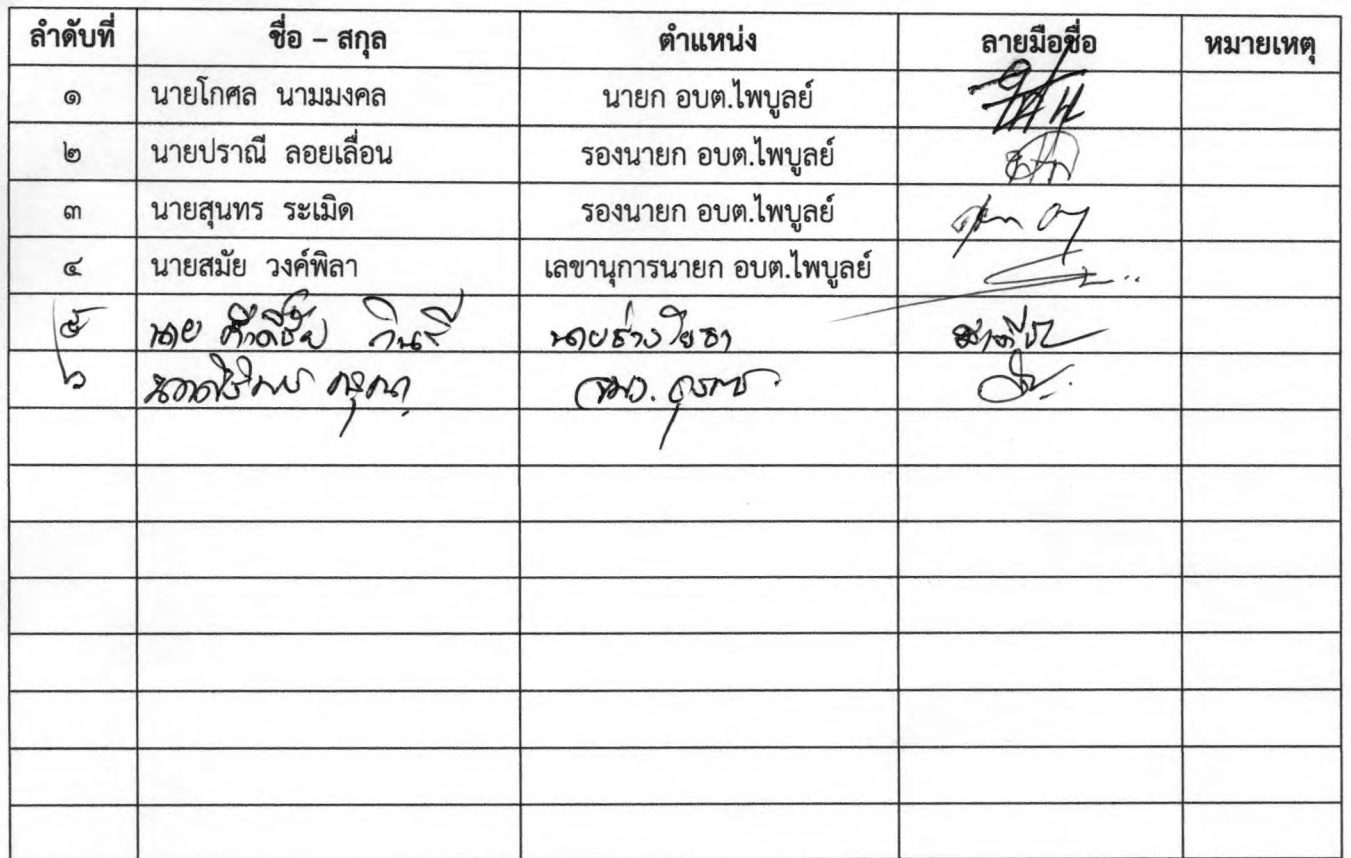 ลำดับที่ ชื่อ – สกุล ตำแหน่ง ลายมือชื่อ หมายเหตุ
๑ นายโกศล นามมงคล นายก อบต.ไพบูลย์
๒ นายปราณี ลอยเลื่อน รองนายก อบต.ไพบูลย์
๓ นายสุนทร ระเมิด รองนายก อบต.ไพบูลย์
๔ นายสมัย วงค์พิลา เลขานุการนายก อบต.ไพบูลย์
๕ นาย ศักดิ์ชัย กินรี นายช่างโยธา
๖